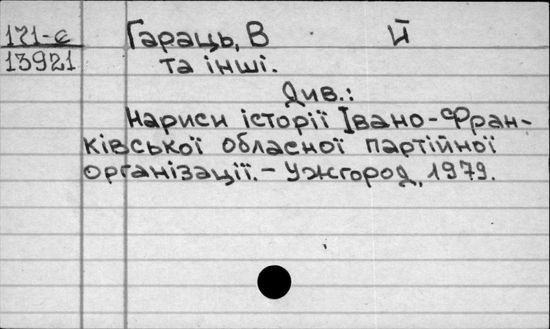 171-е Гараць, В Й
13921 та інші.
Див.:
Нариси історії Івано-Фран-
ківської обласної партійної
організації.- Ужгород, 1979.